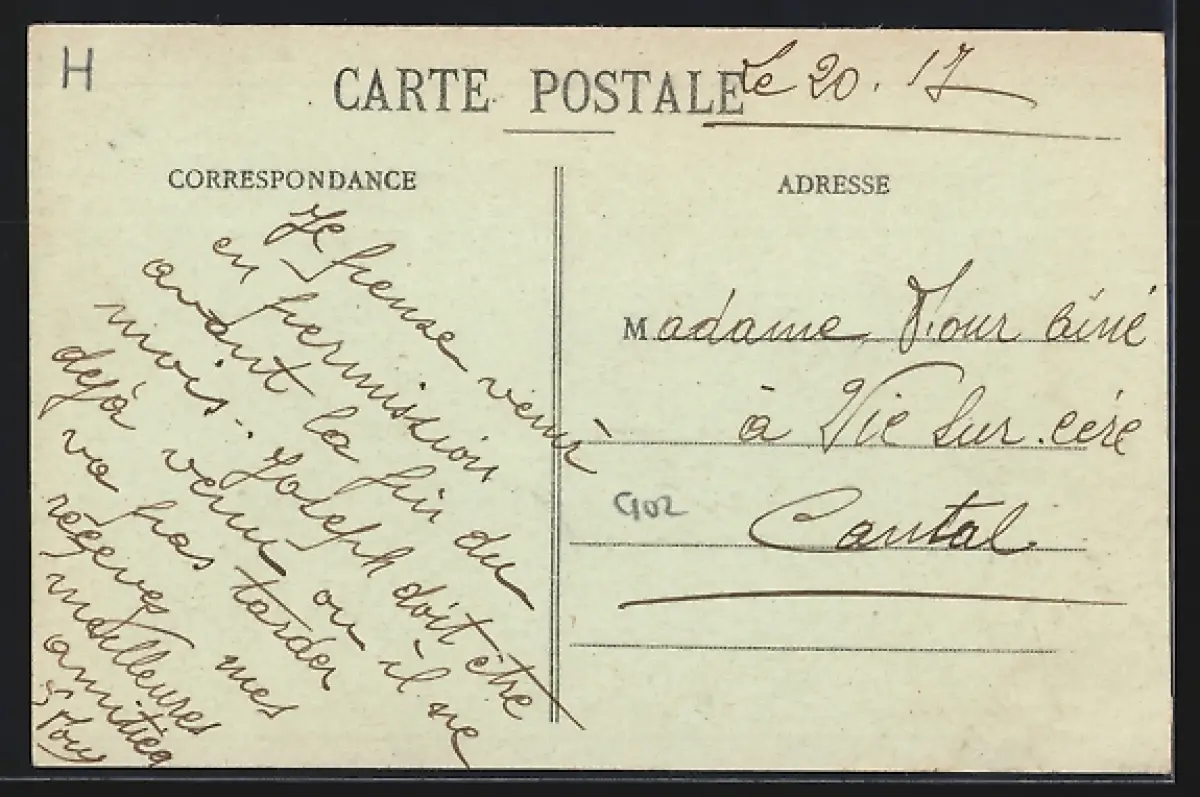 H
CARTE POSTALE
Le 20. 17
CORRESPONDANCE
Je pense venir
en permission
avant la fin du
mois. Joseph doit être
dejà venu ou il ne
va pas tarder
reçeves mes
meilleures
amitiés
ADRESSE
Madame ainé
à Vic sur cére
Cantal